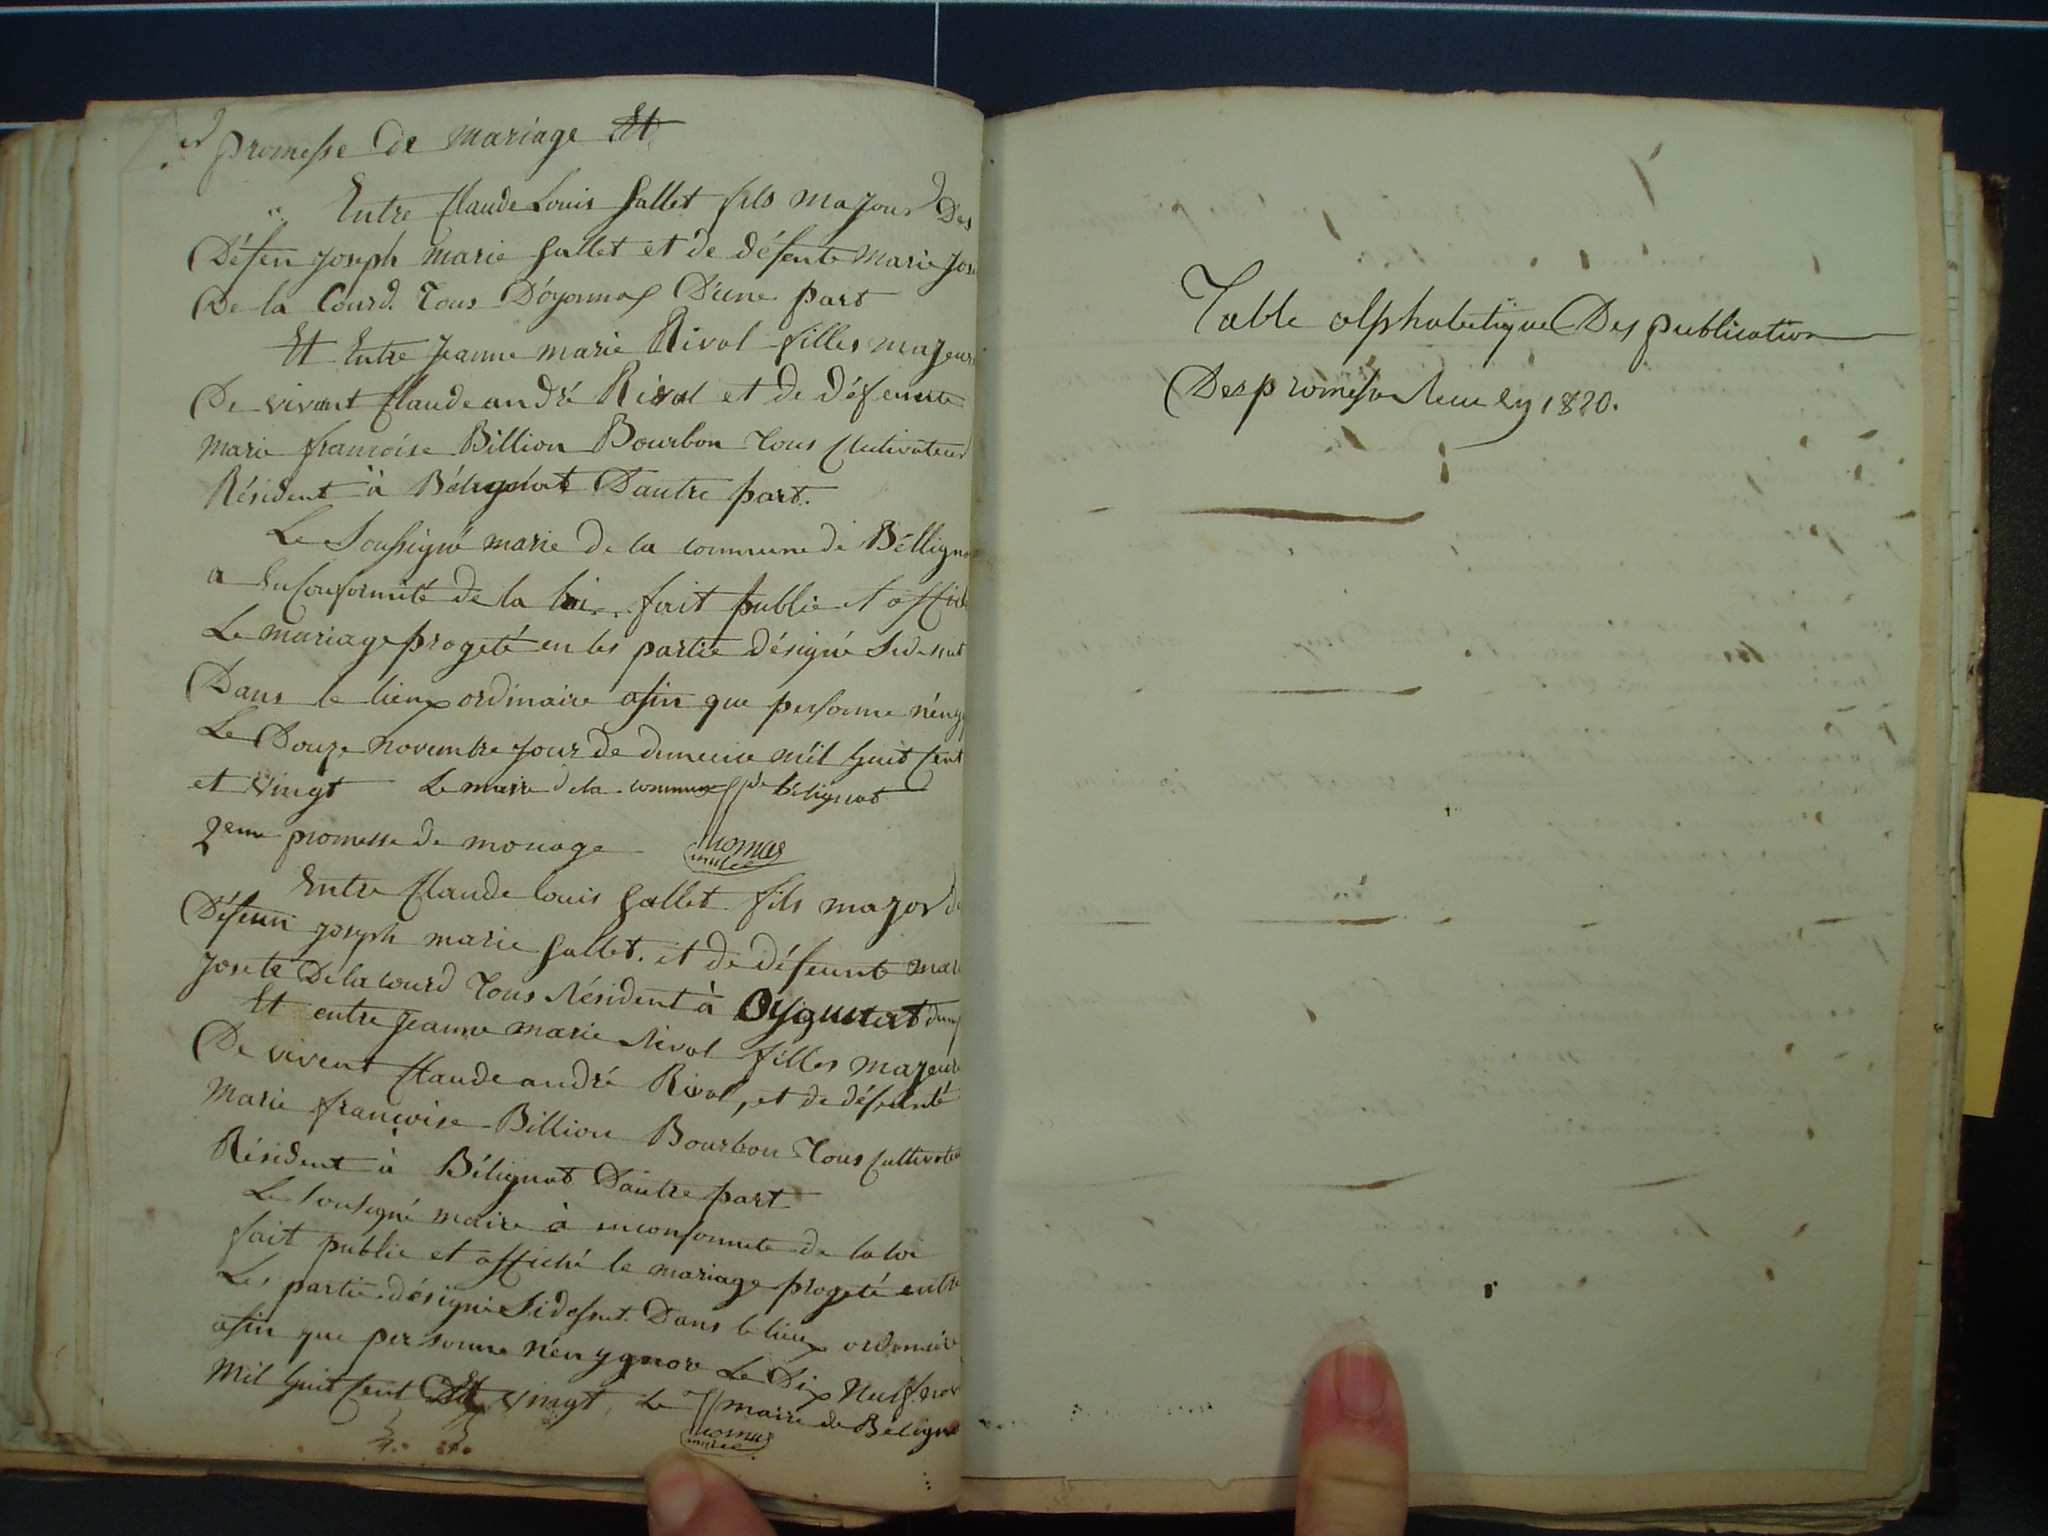 1er promesse de mariage Et
Entre Claude Louis Gallet fils majour Des
Défen joseph marie Gallet et de défente Marie jos
De la Courd. Tous D'oyonnax D'une part
Et Entre Jeanne marie Rival filles majeur
De vivant Claude andré Rival et de Défeunte
Marie francoise Billion Bourbon Tous Cultivateur
Résident à Bélignat D'autre part.
Le Soussigné marie de la commune de Béllign
a En Conformité de la loi fait publie et affich
Le mariage progeté en les partie désigné
Dans le lieux ordinaire afin que personne n'eng
Le Douze novembre jour de dimence mil huit Cent
et vingt Le maire de la commune de bélignat
2eme promesse de mariage
Thomas
maire
Entre Claude louis Gallet fils major d
Défeun joseph marie Gallet. et de défeunte mar
josete Delacourd Tous Résident à
Et entre Jeanne marie Rival filles majeure
De vivent Claude andré Rival, et de défeunte
Marie francoise Billion Bourbon Tous Cultivate
Résident à Bélignat D'autre part
Le Sousigné maire à enconformite de la loi
fait publie et affiché le mariage progeté entre
Les partie désigné Dans le lieux ordinaire
afin que personne n'en ygnore Le Dix Neuf nov
Mil huit Cent Et vingt, Le maire de Béligna
Thomas
maire
Table alphabetique Des publication
Des promesse 1820.